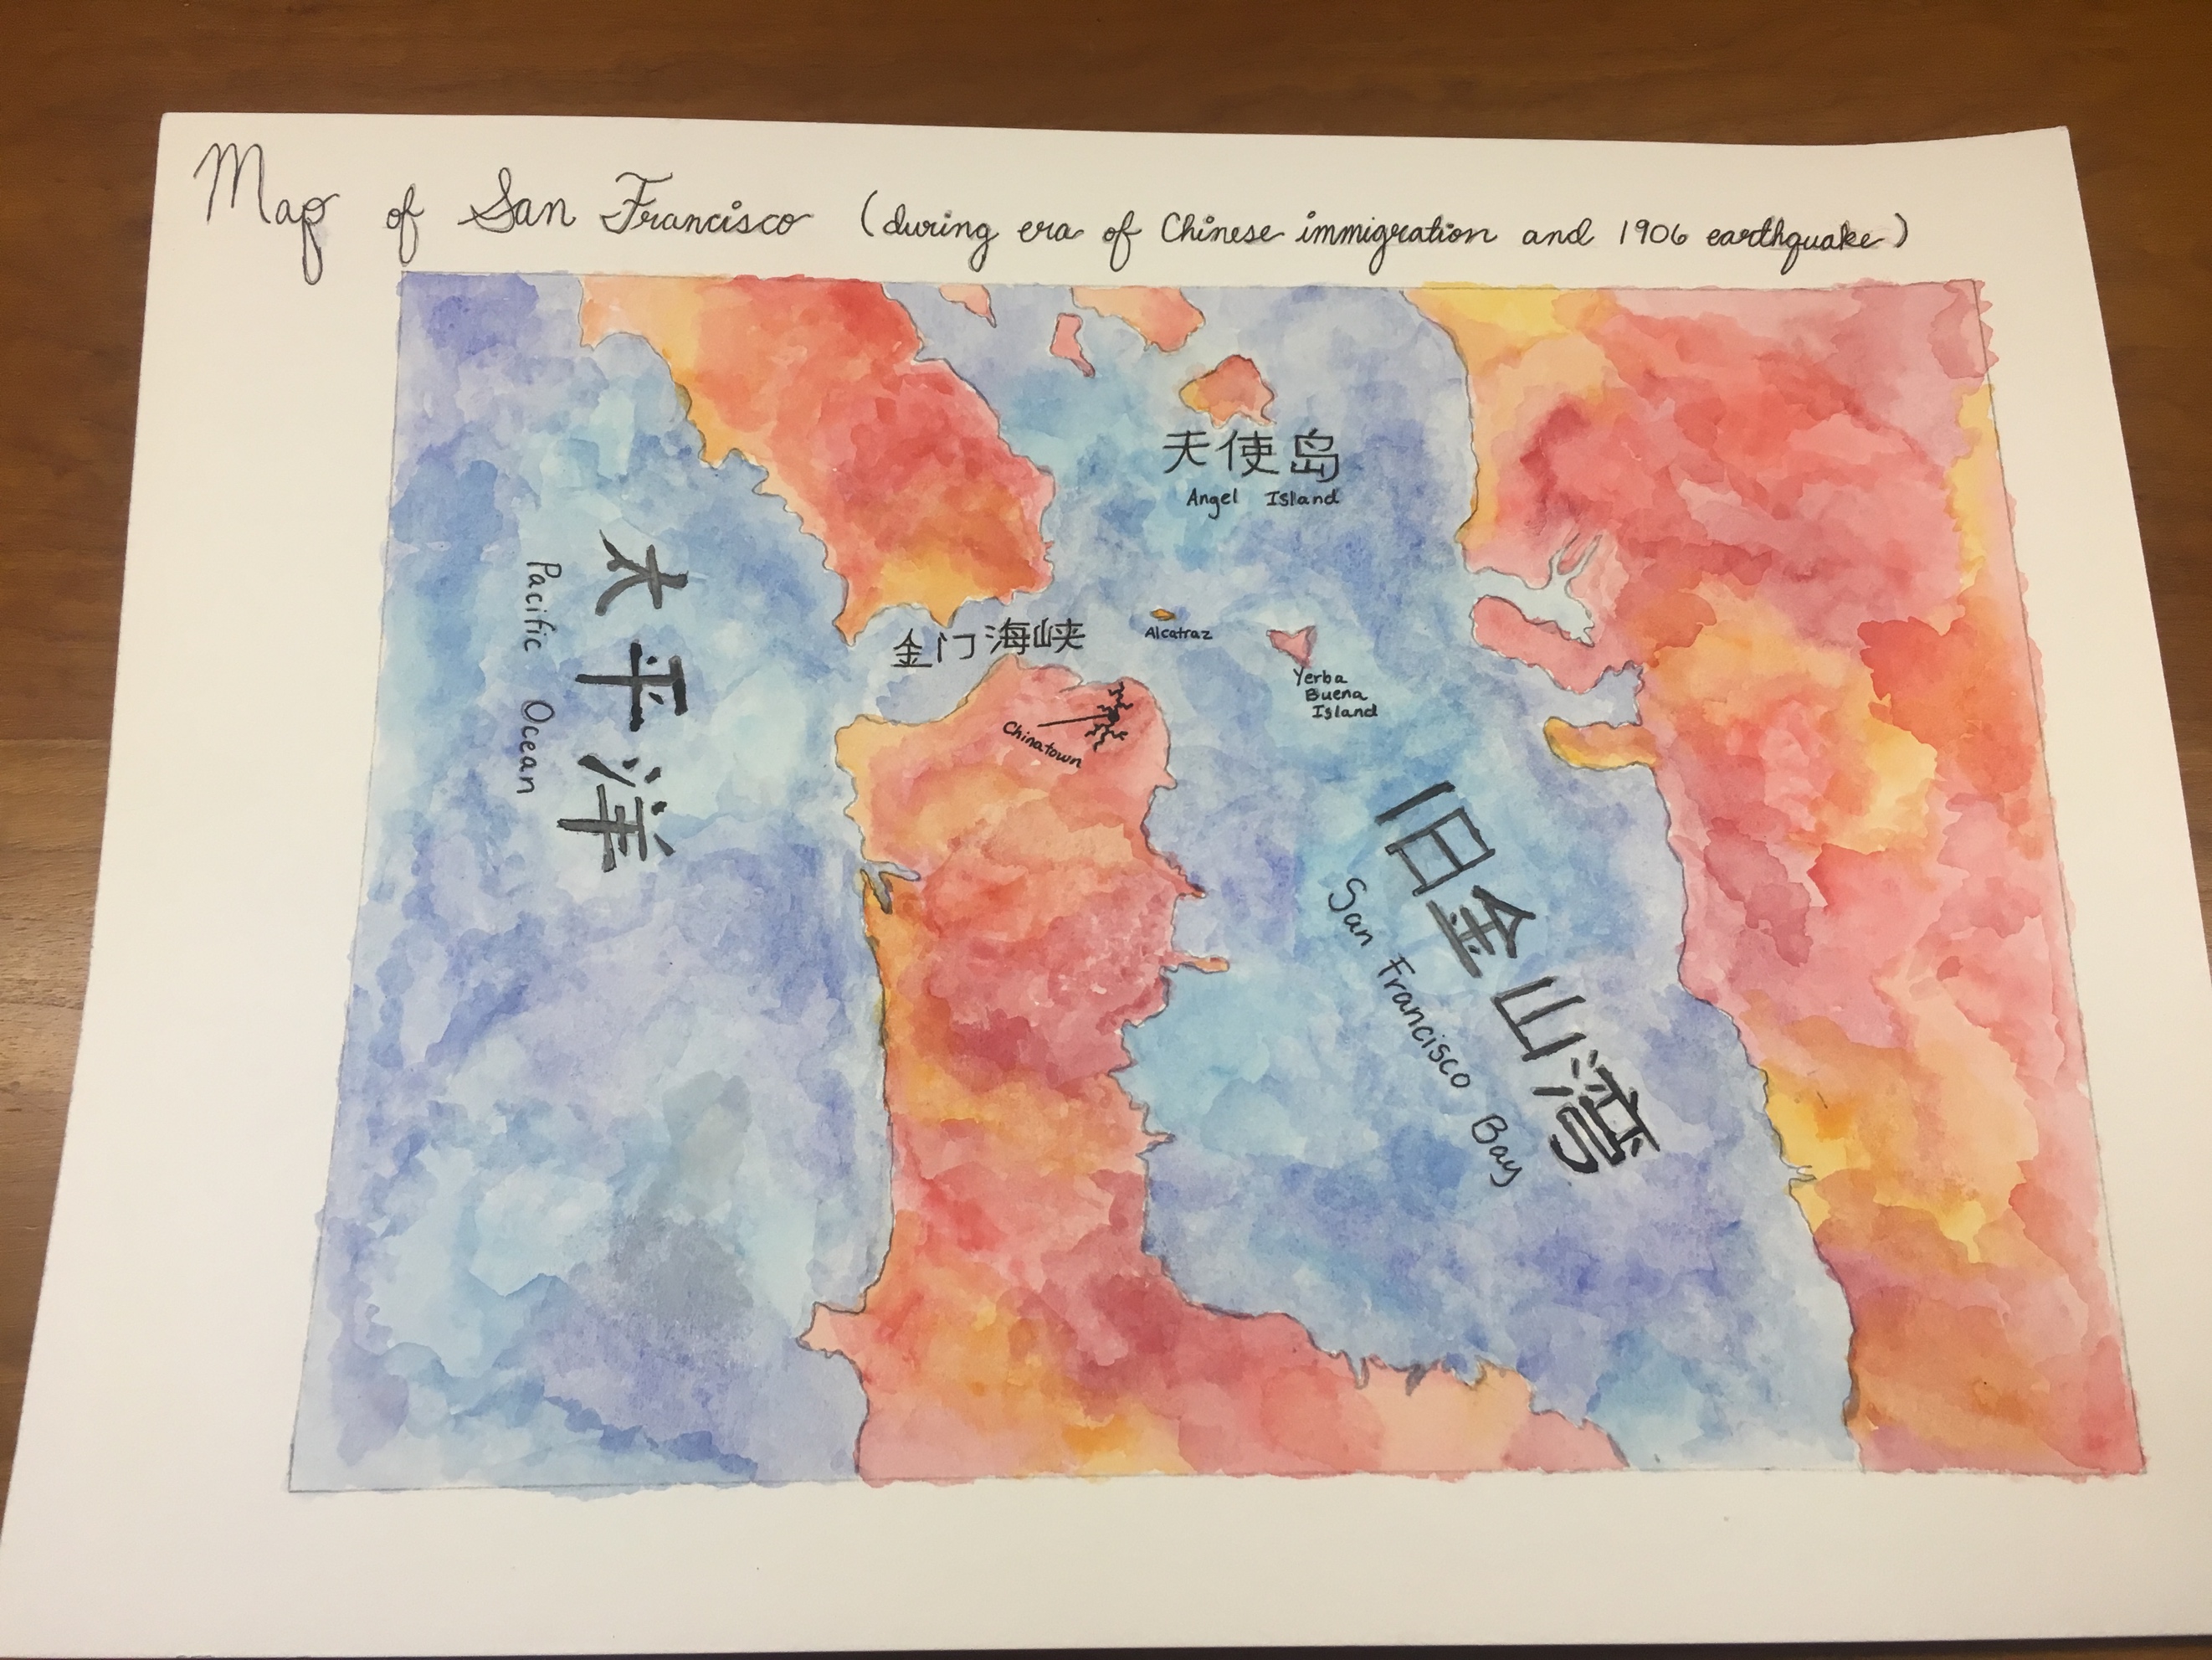 Map of San Francisco (during era of Chinese immigration and 1906 earthquake)
天使岛
Angel Island
太平洋
Pacific Ocean
金门海峡
Alcatraz
Yerba
Buena
Island
Chinatown
旧金山湾
San Francisco Bay